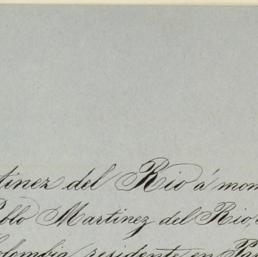 tinez del Rio á mon
Pablo Martinez del Rio,
olombia, residente en Pa